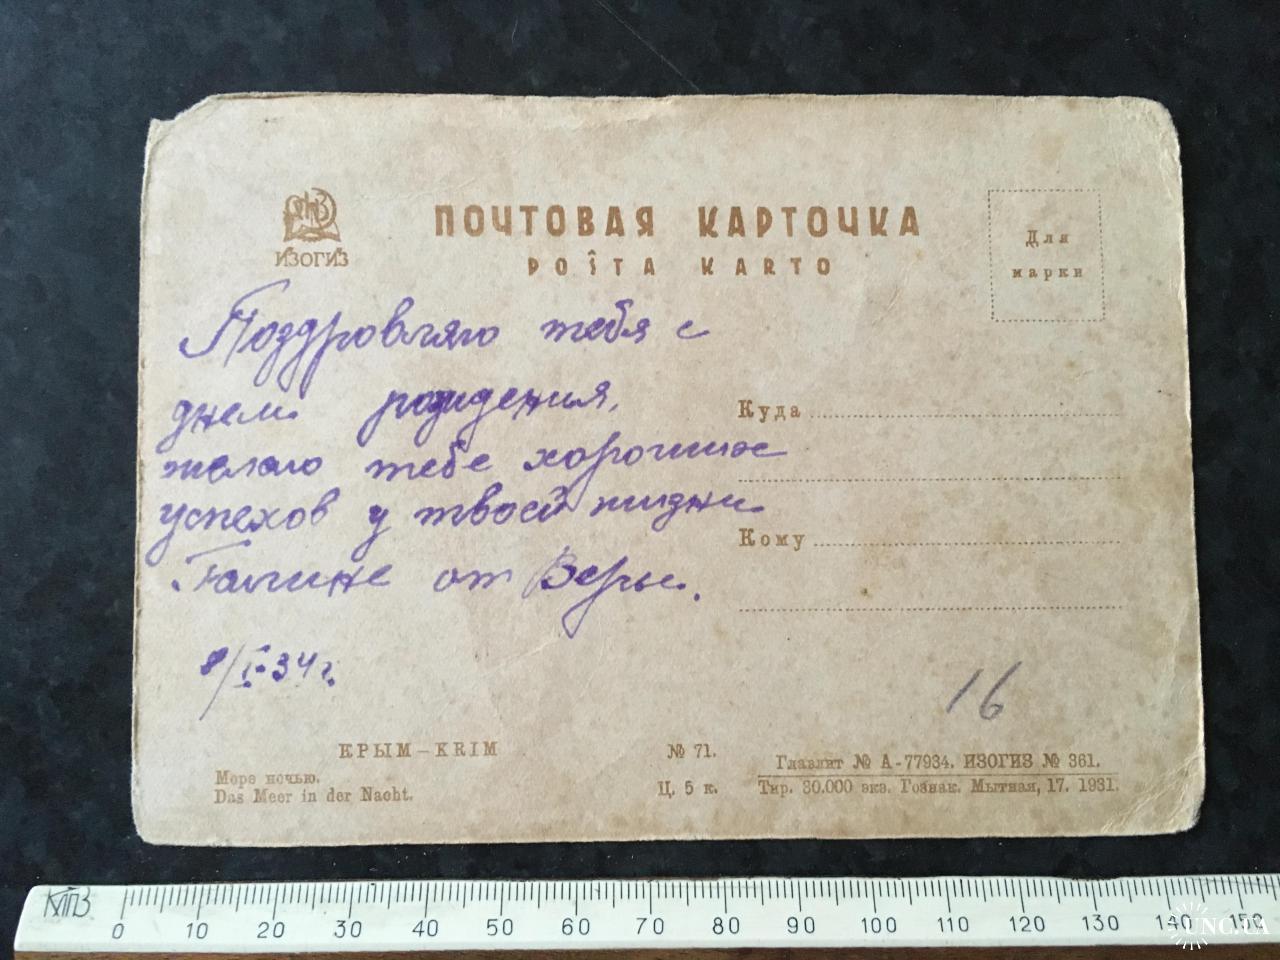 ИЗОГИЗ
ПОЧТОВАЯ КАРТОЧКА
POŜTA KARTO
Для
марки
Поздровляю тебя с
днем рождения,
желаю тебе хороших
успехов у твоей жизни
Галине от Веры.
8/I-34 г.
Куда
Кому
16
КРЫМ – KRIM
Море ночью.
Das Meer in der Nacht.
№ 71.
Ц. 5 к.
Главлит № А-77934. ИЗОГИЗ № 361.
Тир. 30.000 экз. Гознак. Мытная, 17. 1931.
0 10 20 30 40 50 60 70 80 90 100 110 120 130 140 150
UNC.UA